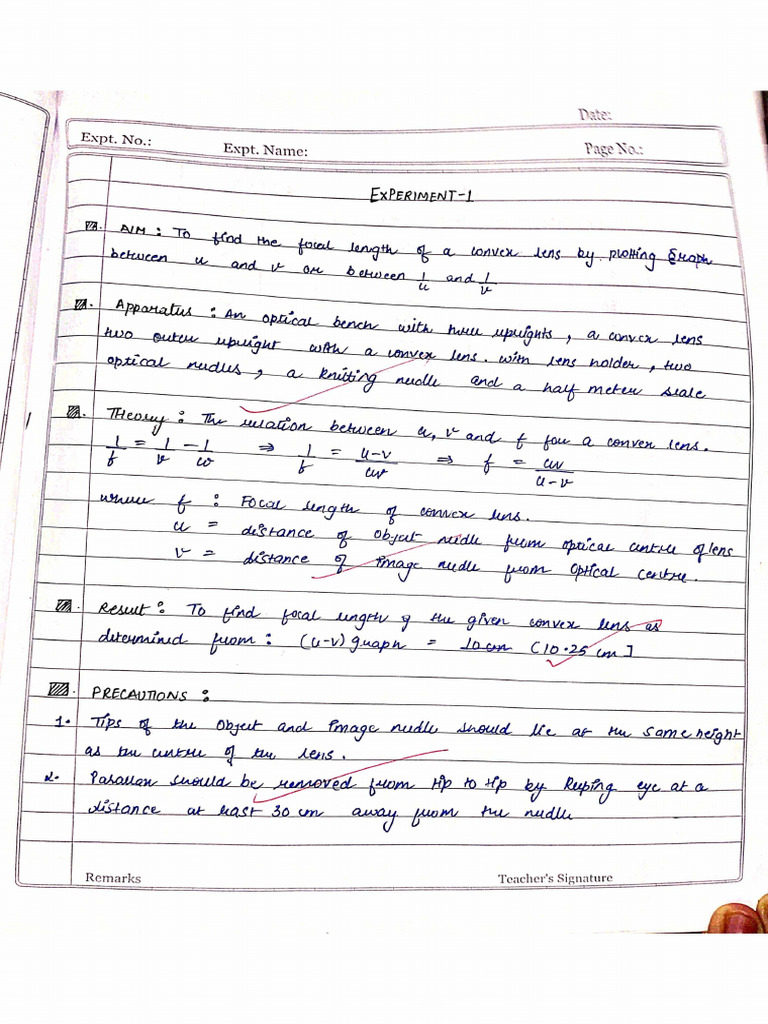 Date:
Expt. No.: Expt. Name: Page No.:
EXPERIMENT-1
AIM : To find the focal length of a convex lens by plotting Graph
between u and v or between 1/u and 1/v
Apparatus : An optical bench with three uprights, a convex lens
two outer upright with a convex lens. with lens holder, two
optical needles, a knitting needle and a half meter scale
Theory : The relation between u, v and f for a convex lens.
1/f = 1/v - 1/u ⇒ 1/f = u-v/uv ⇒ f = uv/u-v
where f : Focal length of convex lens.
u = distance of Object needle from optical centre of lens
v = distance of image needle from Optical centre.
Result : To find focal length of the given convex lens as
determined from : (u-v) graph = 10cm (10.25 cm]
PRECAUTIONS :
1. Tips of the Object and image needle should lie at the same height
as the centre of the lens.
2. Parallax should be removed from tip to tip by keeping eye at a
distance at least 30 cm away from the needle
Remarks Teacher's Signature